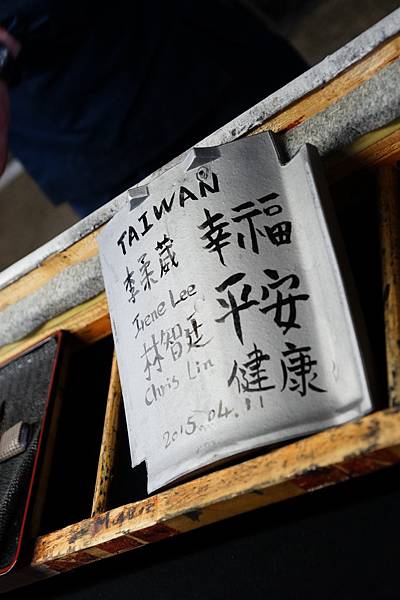 TAIWAN
李柔葳
Irene Lee
林智廷
Chris Lin
2015.04.11
幸福
平安
健康